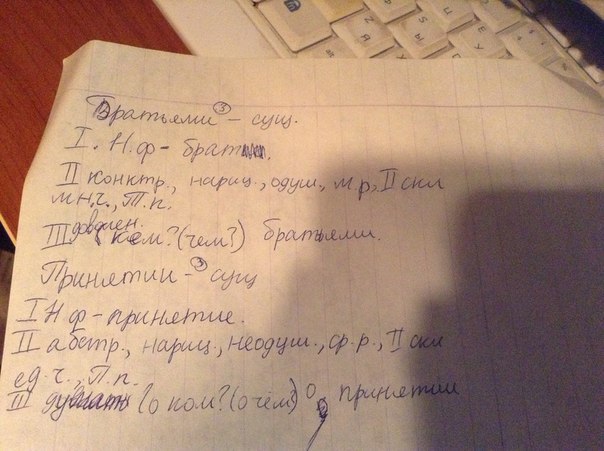 Братьями ③ - сущ.
I. Н.ф - брат
II конктр., нариц., одуш, м.р, II скл
мн.ч., Т.п.
III доволен. (кем? (чем?) братьями.
Принятии - ③ сущ
I Н ф - принятие.
II абстр., нариц., неодуш., ср.р., II скл
ед.ч., П.п.
III (о ком? (о чём) о принятии